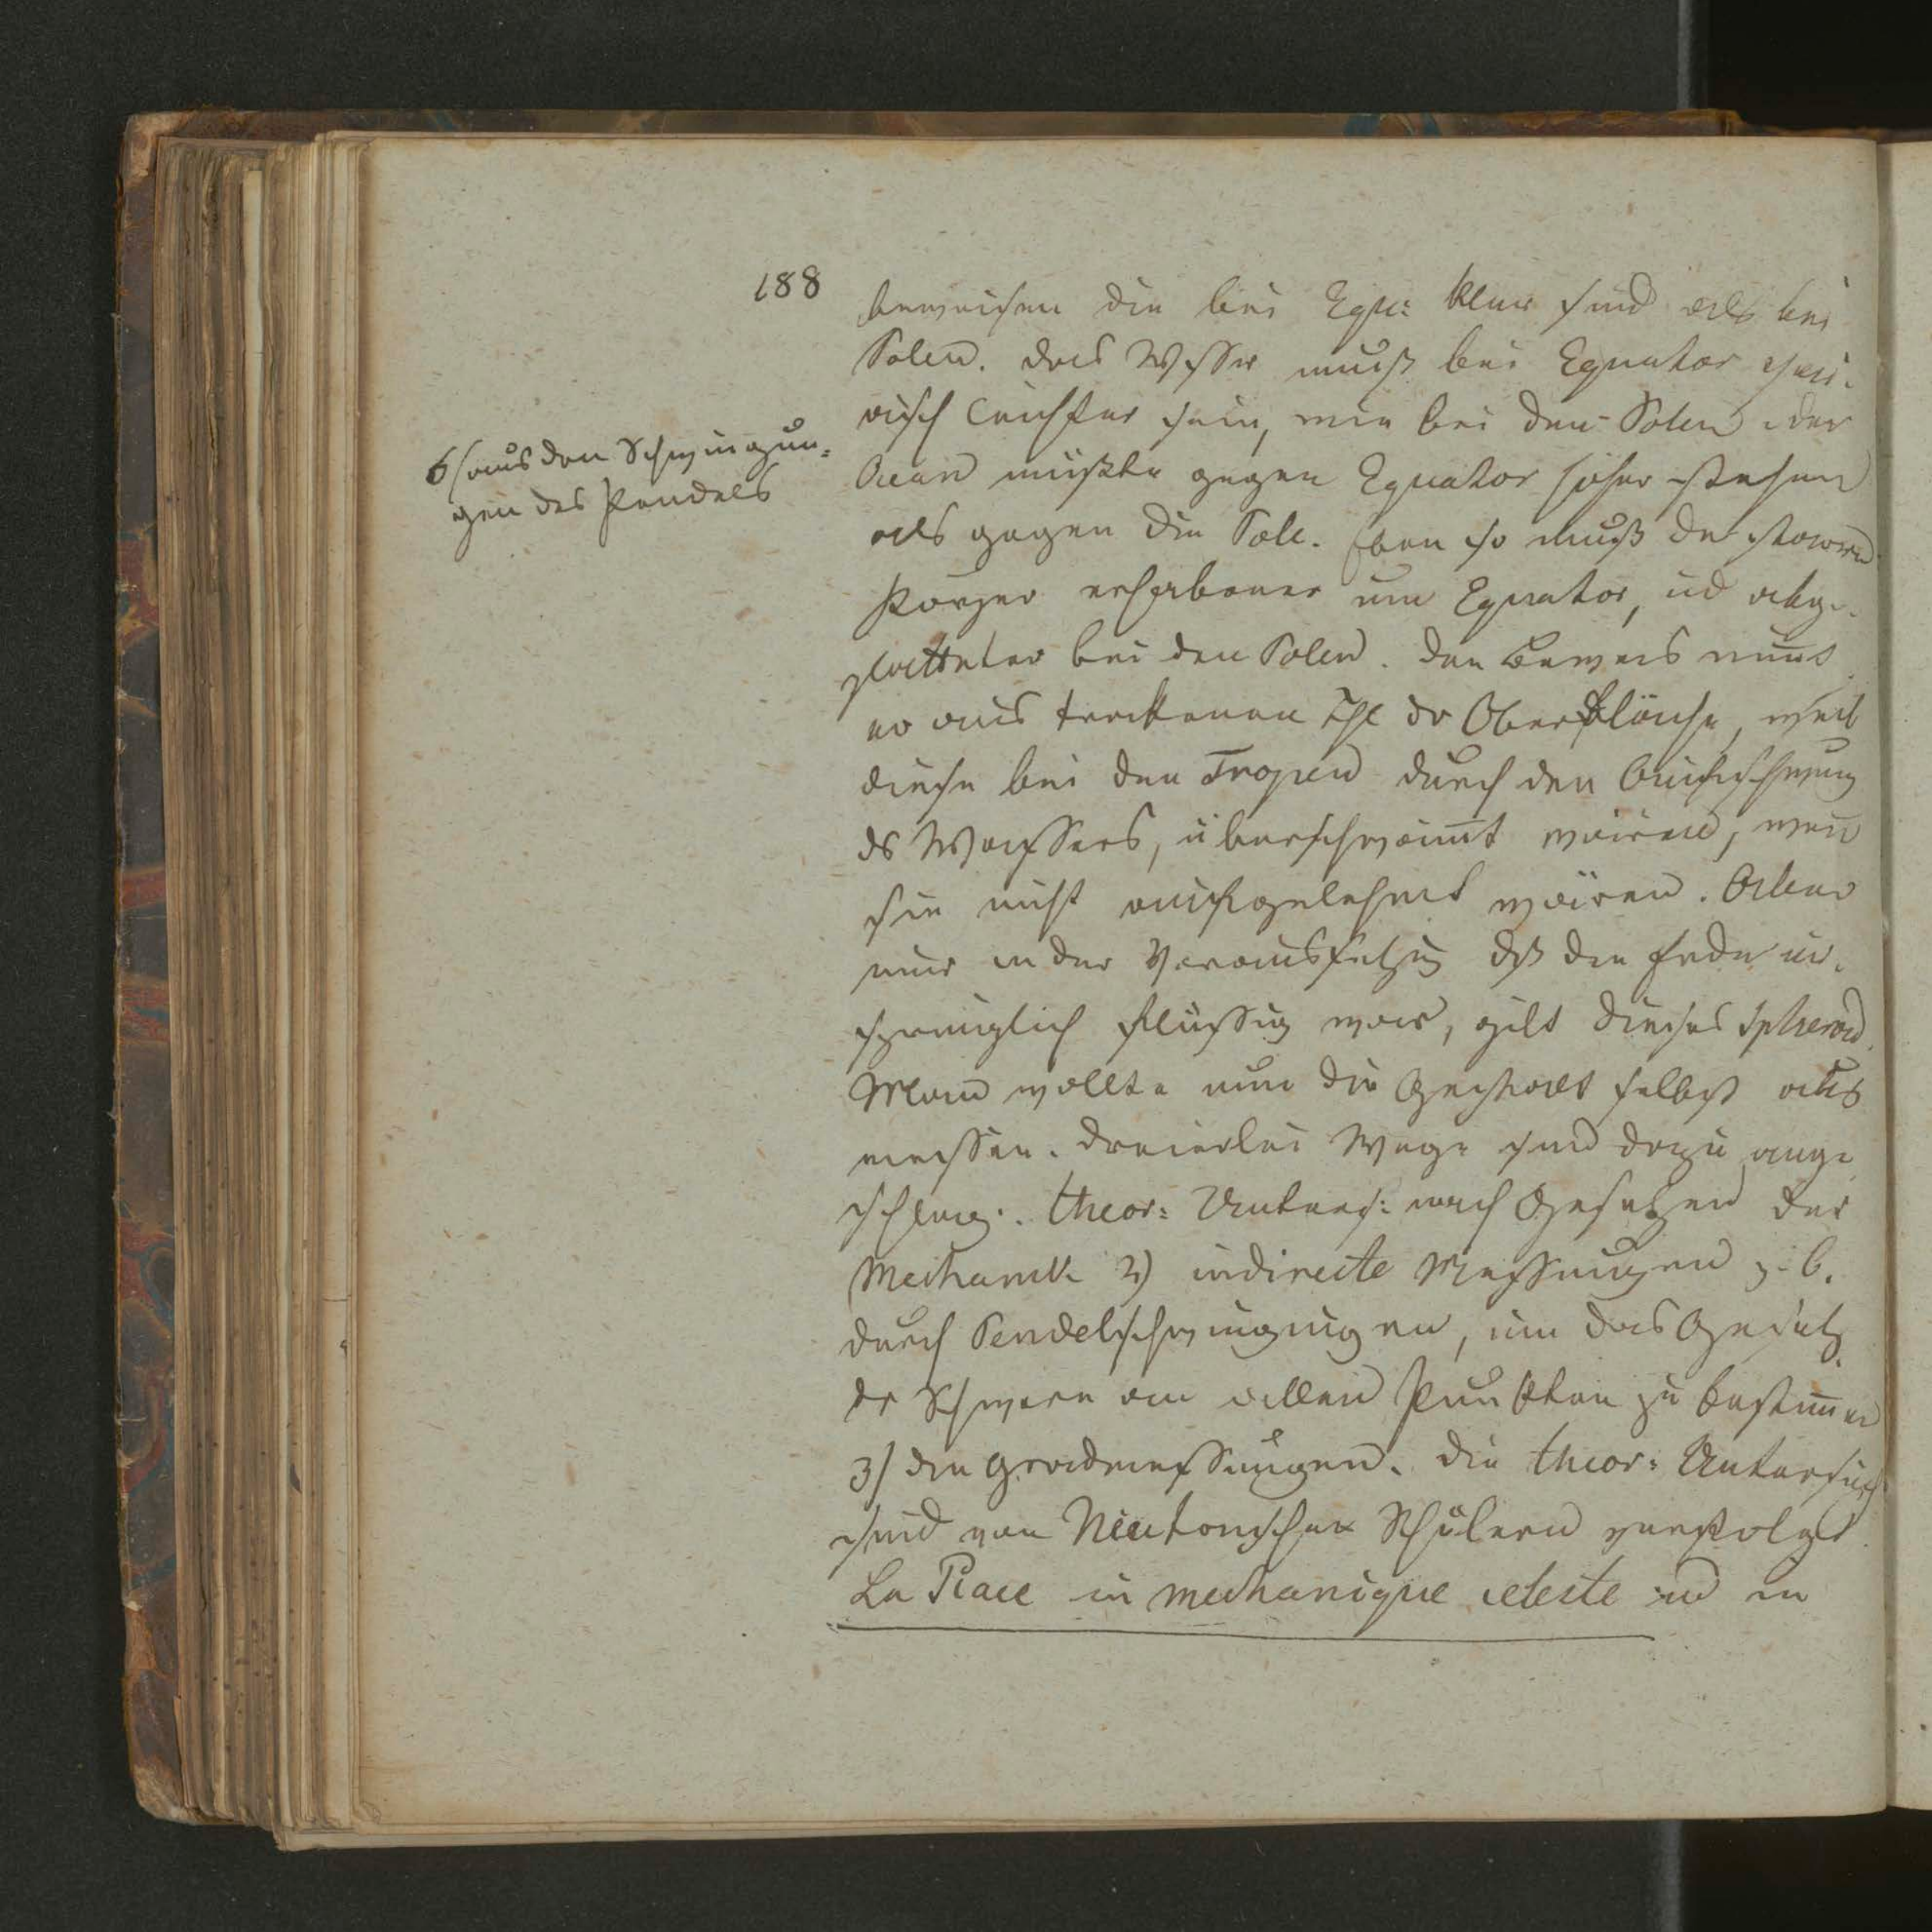 188
beweisen die bei Equ: klein sind als bei
Polen. das Wasser muß bei Equator speci-
fisch leichter sein, wie bei den Polen der
Ocean müßte gegen Equator höher stehen
als gegen die Pole. Eben so muß der starre
Körper erhabener um Equator, ud abge-
platteter bei den Polen. Den Beweis nimt
er aus trockenen Thl dr Oberfläche, weil
diese bei den Tropen durch den
ds Wassers, überschwemt wären, wen
sie nicht wären. Aber
nur in der Voraussetzug dß die Erde ur-
sprünglich flüssig war, gilt dieses Spheroid.
Man wollte nun die Gestalt selbst aus
messen. Dreierlei Wege sind dazu ange
schlag:. theor: Unters: nach Gesetzen der
Mechanik 2) indirecte Messungen z. b.
durch Pendelschwingungen, um das Gesetz
dr Schwere an allen Punkten zu bestimen
3) die Gradmessungen. Die theor: Untersuch
sind von Neutonschen Schülern verfolgt
La Place in mechanique celeste ud in
6) aus den Schwingun-
gen des Pendels